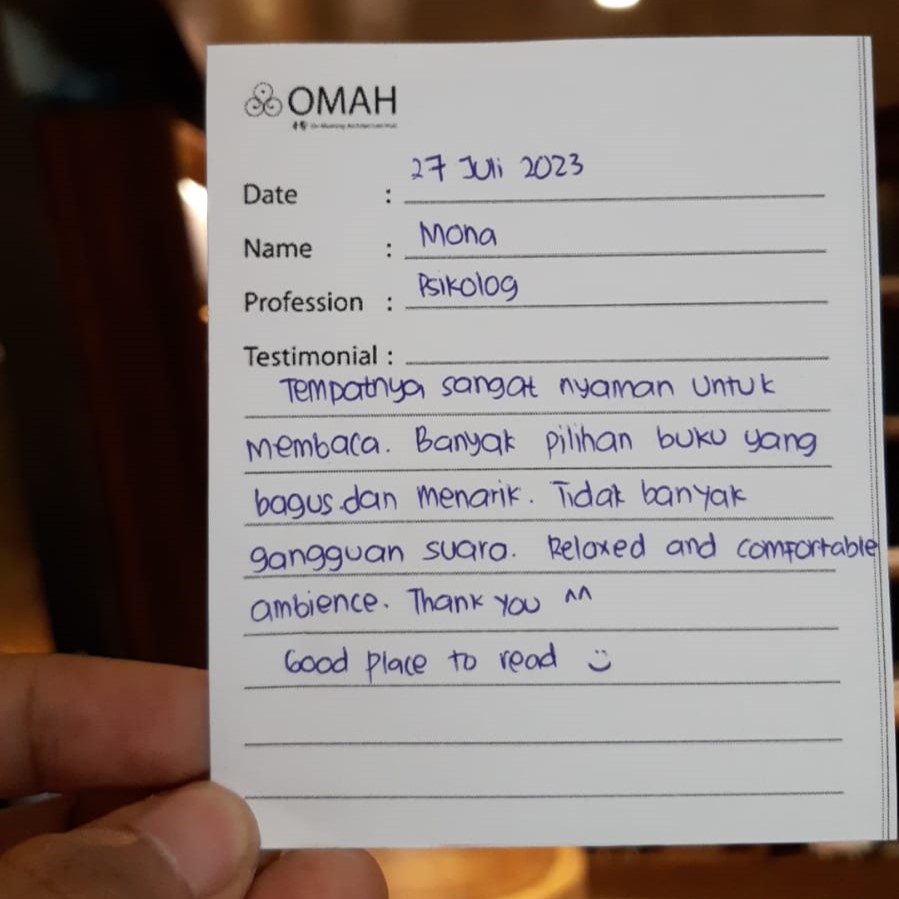 OMAH
Date : 27 Juli 2023
Name : Mona
Profession : Psikolog
Testimonial :
Tempatnya sangat nyaman untuk
membaca. Banyak pilihan buku yang
bagus dan menarik. Tidak banyak
gangguan suara. Relaxed and comfortable
ambience. Thank you ^^
Good place to read